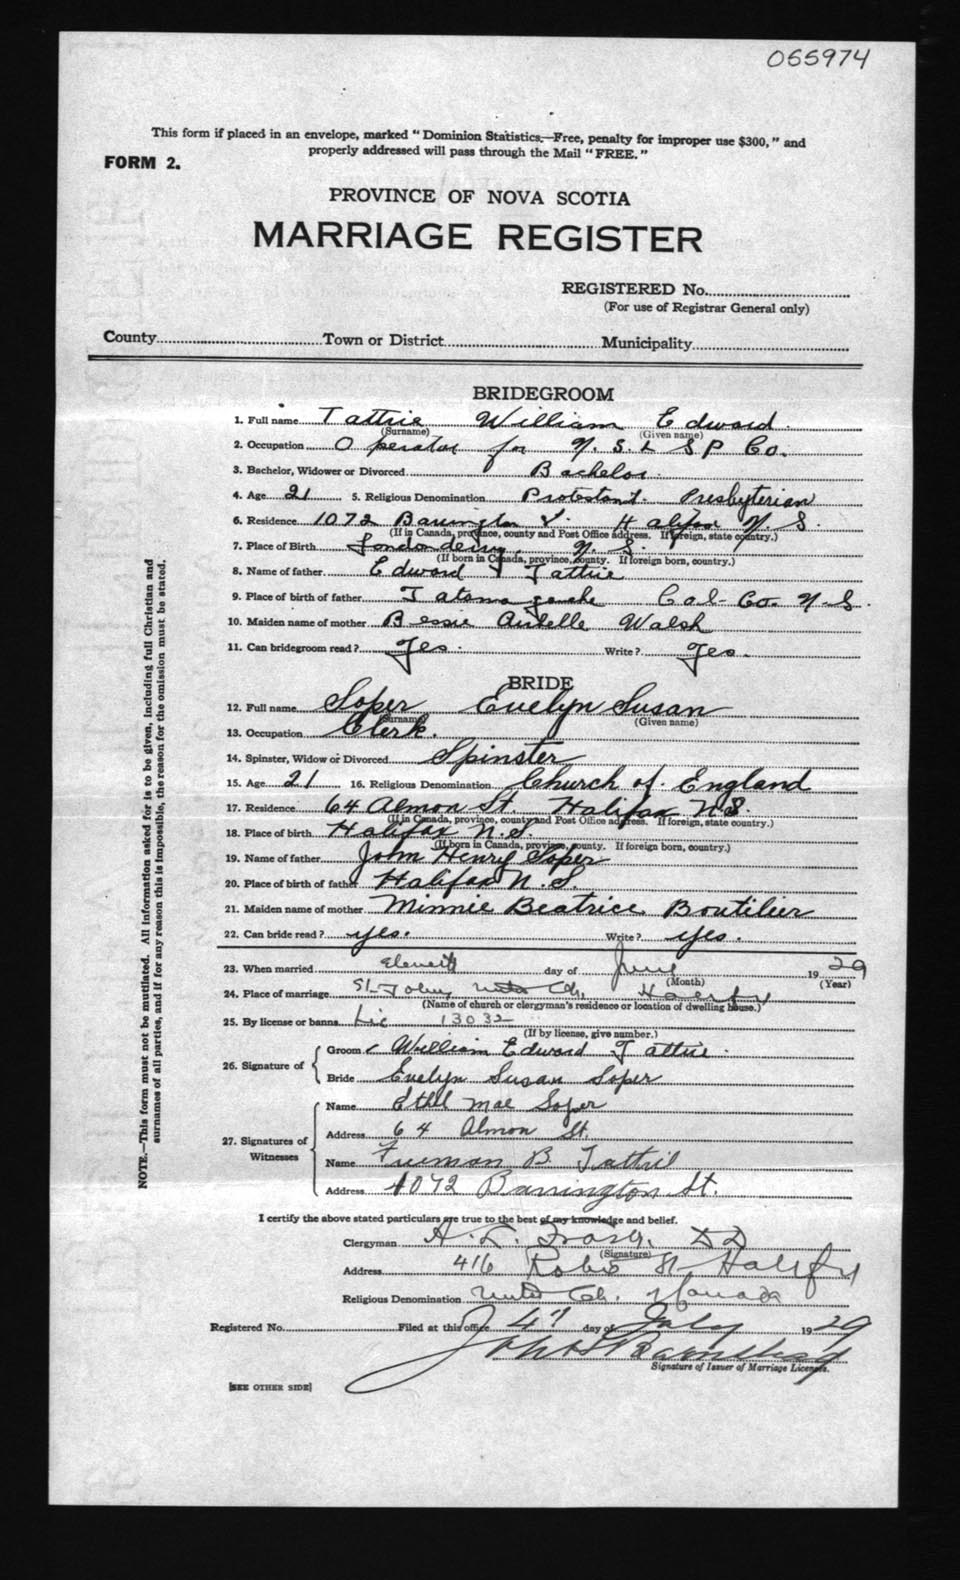 055974
This form if placed in an envelope, marked "Dominion Statistics,—Free, penalty for improper use $300," and
properly addressed will pass through the Mail "FREE."
FORM 2.
PROVINCE OF NOVA SCOTIA
MARRIAGE REGISTER
REGISTERED No.
(For use of Registrar General only)
County Town or District Municipality
BRIDEGROOM
1. Full name Tattrie William Edward
(Surname) (Given name)
2. Occupation Operator for N. S. L & P Co.
3. Bachelor, Widower or Divorced Bachelor
4. Age 21 5. Religious Denomination Protestant Presbyterian
6. Residence 1072 Barrington St. Halifax N. S.
(If in Canada, province, county and Post Office address. If foreign, state country.)
7. Place of Birth Londonderry, N. S.
(If born in Canada, province, county. If foreign born, country.)
8. Name of father Edward Tattrie
9. Place of birth of father Tatamagouche Col. Co. N. S.
10. Maiden name of mother Bessie Walsh
11. Can bridegroom read? Yes. Write? Yes.
BRIDE
12. Full name Soper Evelyn Susan
(Surname) (Given name)
13. Occupation Clerk.
14. Spinster, Widow or Divorced Spinster
15. Age 21 16. Religious Denomination Church of England
17. Residence 64 Almon St. Halifax N.S.
(If in Canada, province, county and Post Office address. If foreign, state country.)
18. Place of birth Halifax N.S.
(If born in Canada, province, county. If foreign born, country.)
19. Name of father John Henry Soper
20. Place of birth of father Halifax N. S.
21. Maiden name of mother Minnie Beatrice Boutilier
22. Can bride read? yes. Write? yes.
23. When married Eleventh day of June 1929
(Month) (Year)
24. Place of marriage St Johns United Ch. Halifax
(Name of church or clergyman's residence or location of dwelling house.)
25. By license or banns Lic 13032
(If by license, give number.)
26. Signature of
Groom William Edward Tattrie
Bride Evelyn Susan Soper
27. Signatures of Witnesses
Name Ethel Mae Soper
Address 64 Almon St.
Name Freeman B. Tattrie
Address 1072 Barrington St.
I certify the above stated particulars are true to the best of my knowledge and belief.
Clergyman A. L. Fraser DD
(Signature)
Address 416 Robie St Halifax
Religious Denomination United Ch. Canada
Registered No. Filed at this office 4th day of July 1929
Signature of Issuer of Marriage Licenses.
[SEE OTHER SIDE]
NOTE.—This form must not be mutilated. All information asked for is to be given, including full Christian and
surnames of all parties, and if for any reason this is impossible, the reason for the omission must be stated.